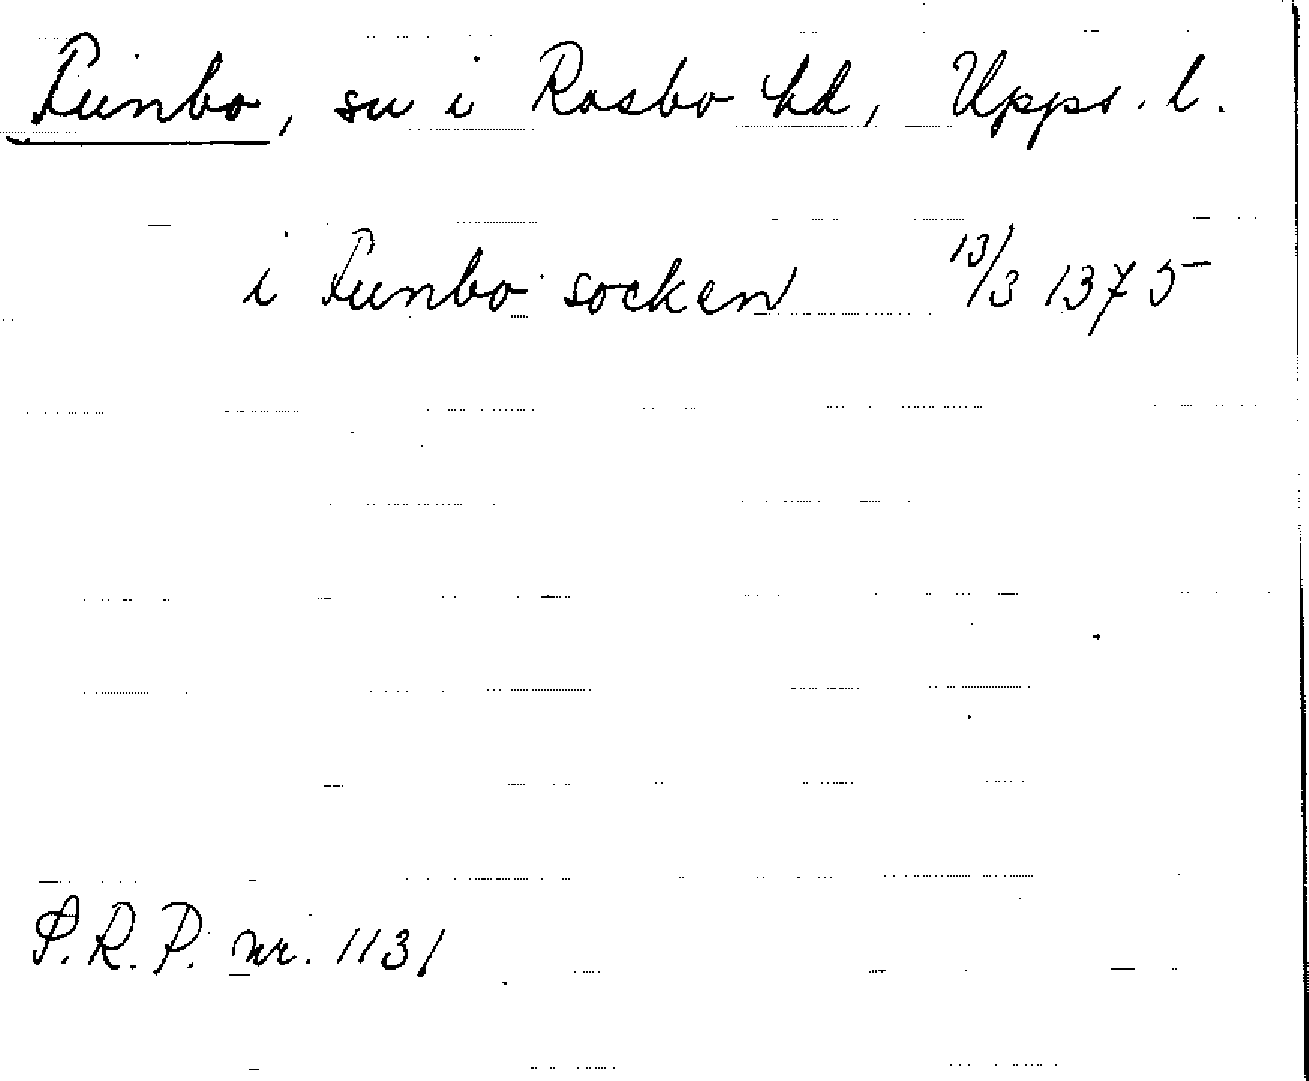 Funbo, sn i Rasbo hd, Upps. l.
i Funbo socken 13/3 1375
S.R.P. nr. 1131